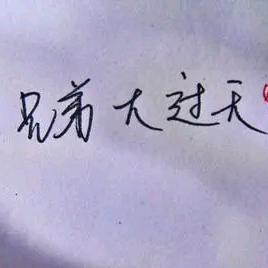 兄弟大过天